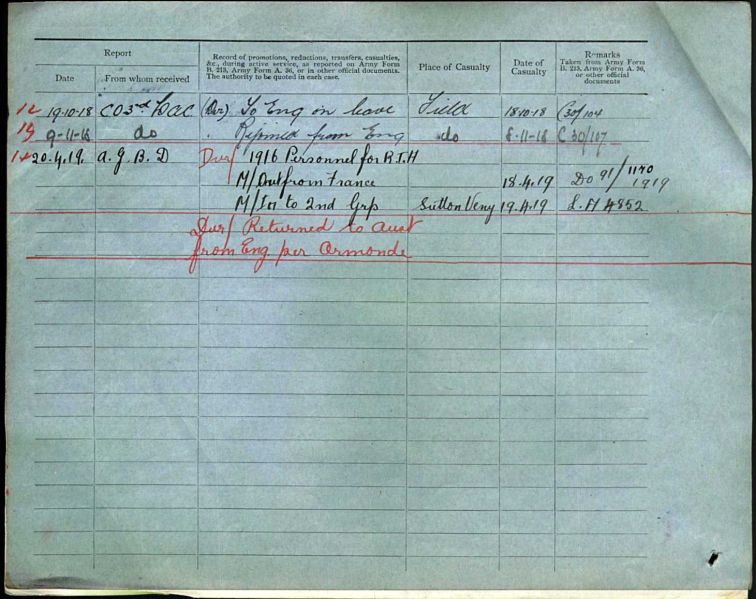 Report
Date
From whom received
Record of promotions, reductions, transfers, casualties,
&c., during active service, as reported on Army Form
B. 213, Army Form A. 36, or in other official documents.
The authority to be quoted in each case.
Place of Casualty
Date of
Casualty
Remarks
Taken from Army Form
B. 213, Army Form A. 36,
or other official
documents
12 19-10-18 CO 3rd DAC (Dvr) To Eng on leave Field 18-10-18 C30/104
13 9-11-18 do " Rejoined from Eng do 8-11-18 C 30/107
14 20.4.19. A.G.B.D Dvr/ 1916 Personnel for R.T.A
M/Out from France 18.4.19 Do 91/1170 1919
M/In to 2nd Grp Sutton Veny 19.4.19 L.H 4852
Dvr/ Returned to Aust
from Eng per Ormonde